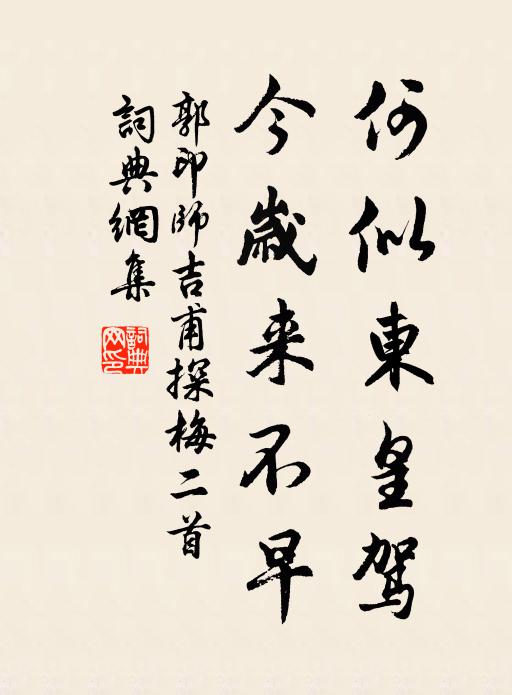 何似東皇駕
今歲来不早
郭印師吉甫探梅二首
詞典網集
詞典網印